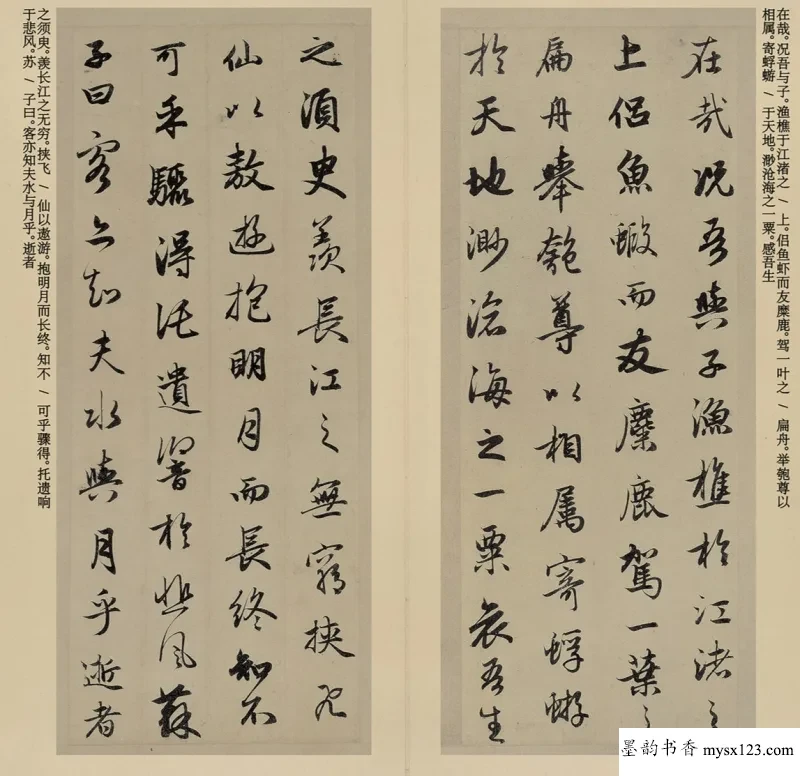 在哉。况吾与子。渔樵于江渚之 / 上。侣鱼虾而友糜鹿。驾一叶之 / 扁舟。举匏尊以
相属。寄蜉蝣 / 于天地。渺沧海之一粟。感吾生
在哉况吾與子漁樵於江渚之
上侣魚蝦而友麋鹿駕一葉之
扁舟舉匏尊以相属寄蜉蝣
於天地渺滄海之一粟哀吾生
之須臾羨長江之無窮挾飛
仙以敖遊抱明月而長終知不
可乎驟得託遺響於悲風蘇
子曰客亦知夫水與月乎逝者
之须臾。羡长江之无穷。挟飞 / 仙以遨游。抱明月而长终。知不 / 可乎骤得。托遗响
于悲风。苏 / 子曰。客亦知夫水与月乎。逝者
墨韵书香 mysx123.com